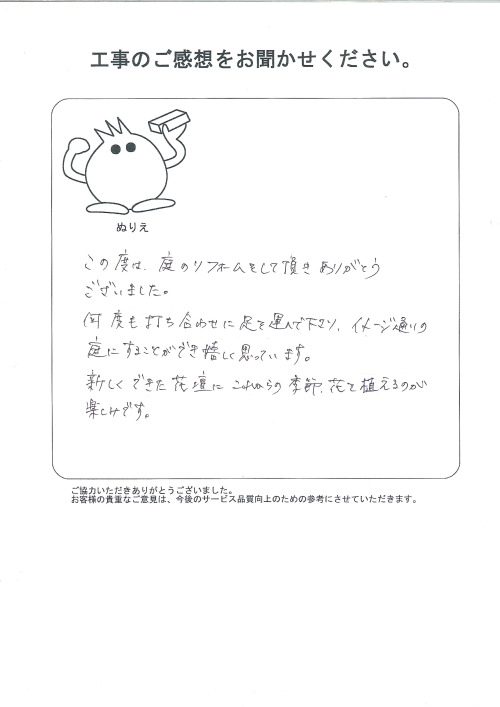 工事のご感想をお聞かせください。
ぬりえ
この度は、庭のリフォームをして頂きありがとう
ございました。
何度も打ち合わせに足を運んで下さり、イメージ通りの
庭にすることができ嬉しく思っています。
新しくできた花壇にこれからの季節、花を植えるのが
楽しみです。
ご協力いただきありがとうございました。
お客様の貴重なご意見は、今後のサービス品質向上のための参考にさせていただきます。